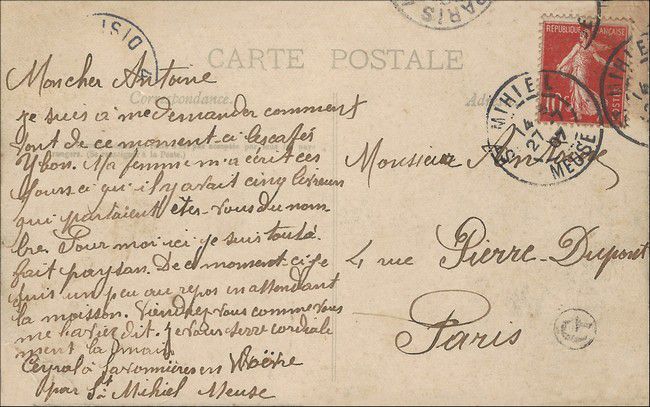 CARTE POSTALE
Correspondance
Mon cher Antoine
je suis à me demander comment
font de ce moment-ci les cafés
Ma femme m'a écrit ces
jours ci qu'il y avait cinq
qui partaient êtes-vous du nom-
bre. Pour moi ici je suis tout à
fait paysan. De ce moment-ci je
suis un peu au repos en attendant
la moisson. Viendrez vous comme vous
me l'aviez dit. Je vous serre cordiale
ment la main
à Savonnières en Woëvre
par St Mihiel Meuse
REPUBLIQUE FRANÇAISE
10
POSTES
ST MIHIEL
14
27 -7
07
MEUSE
PARIS
DIST
Monsieur
4 rue Pierre-Dupont
Paris